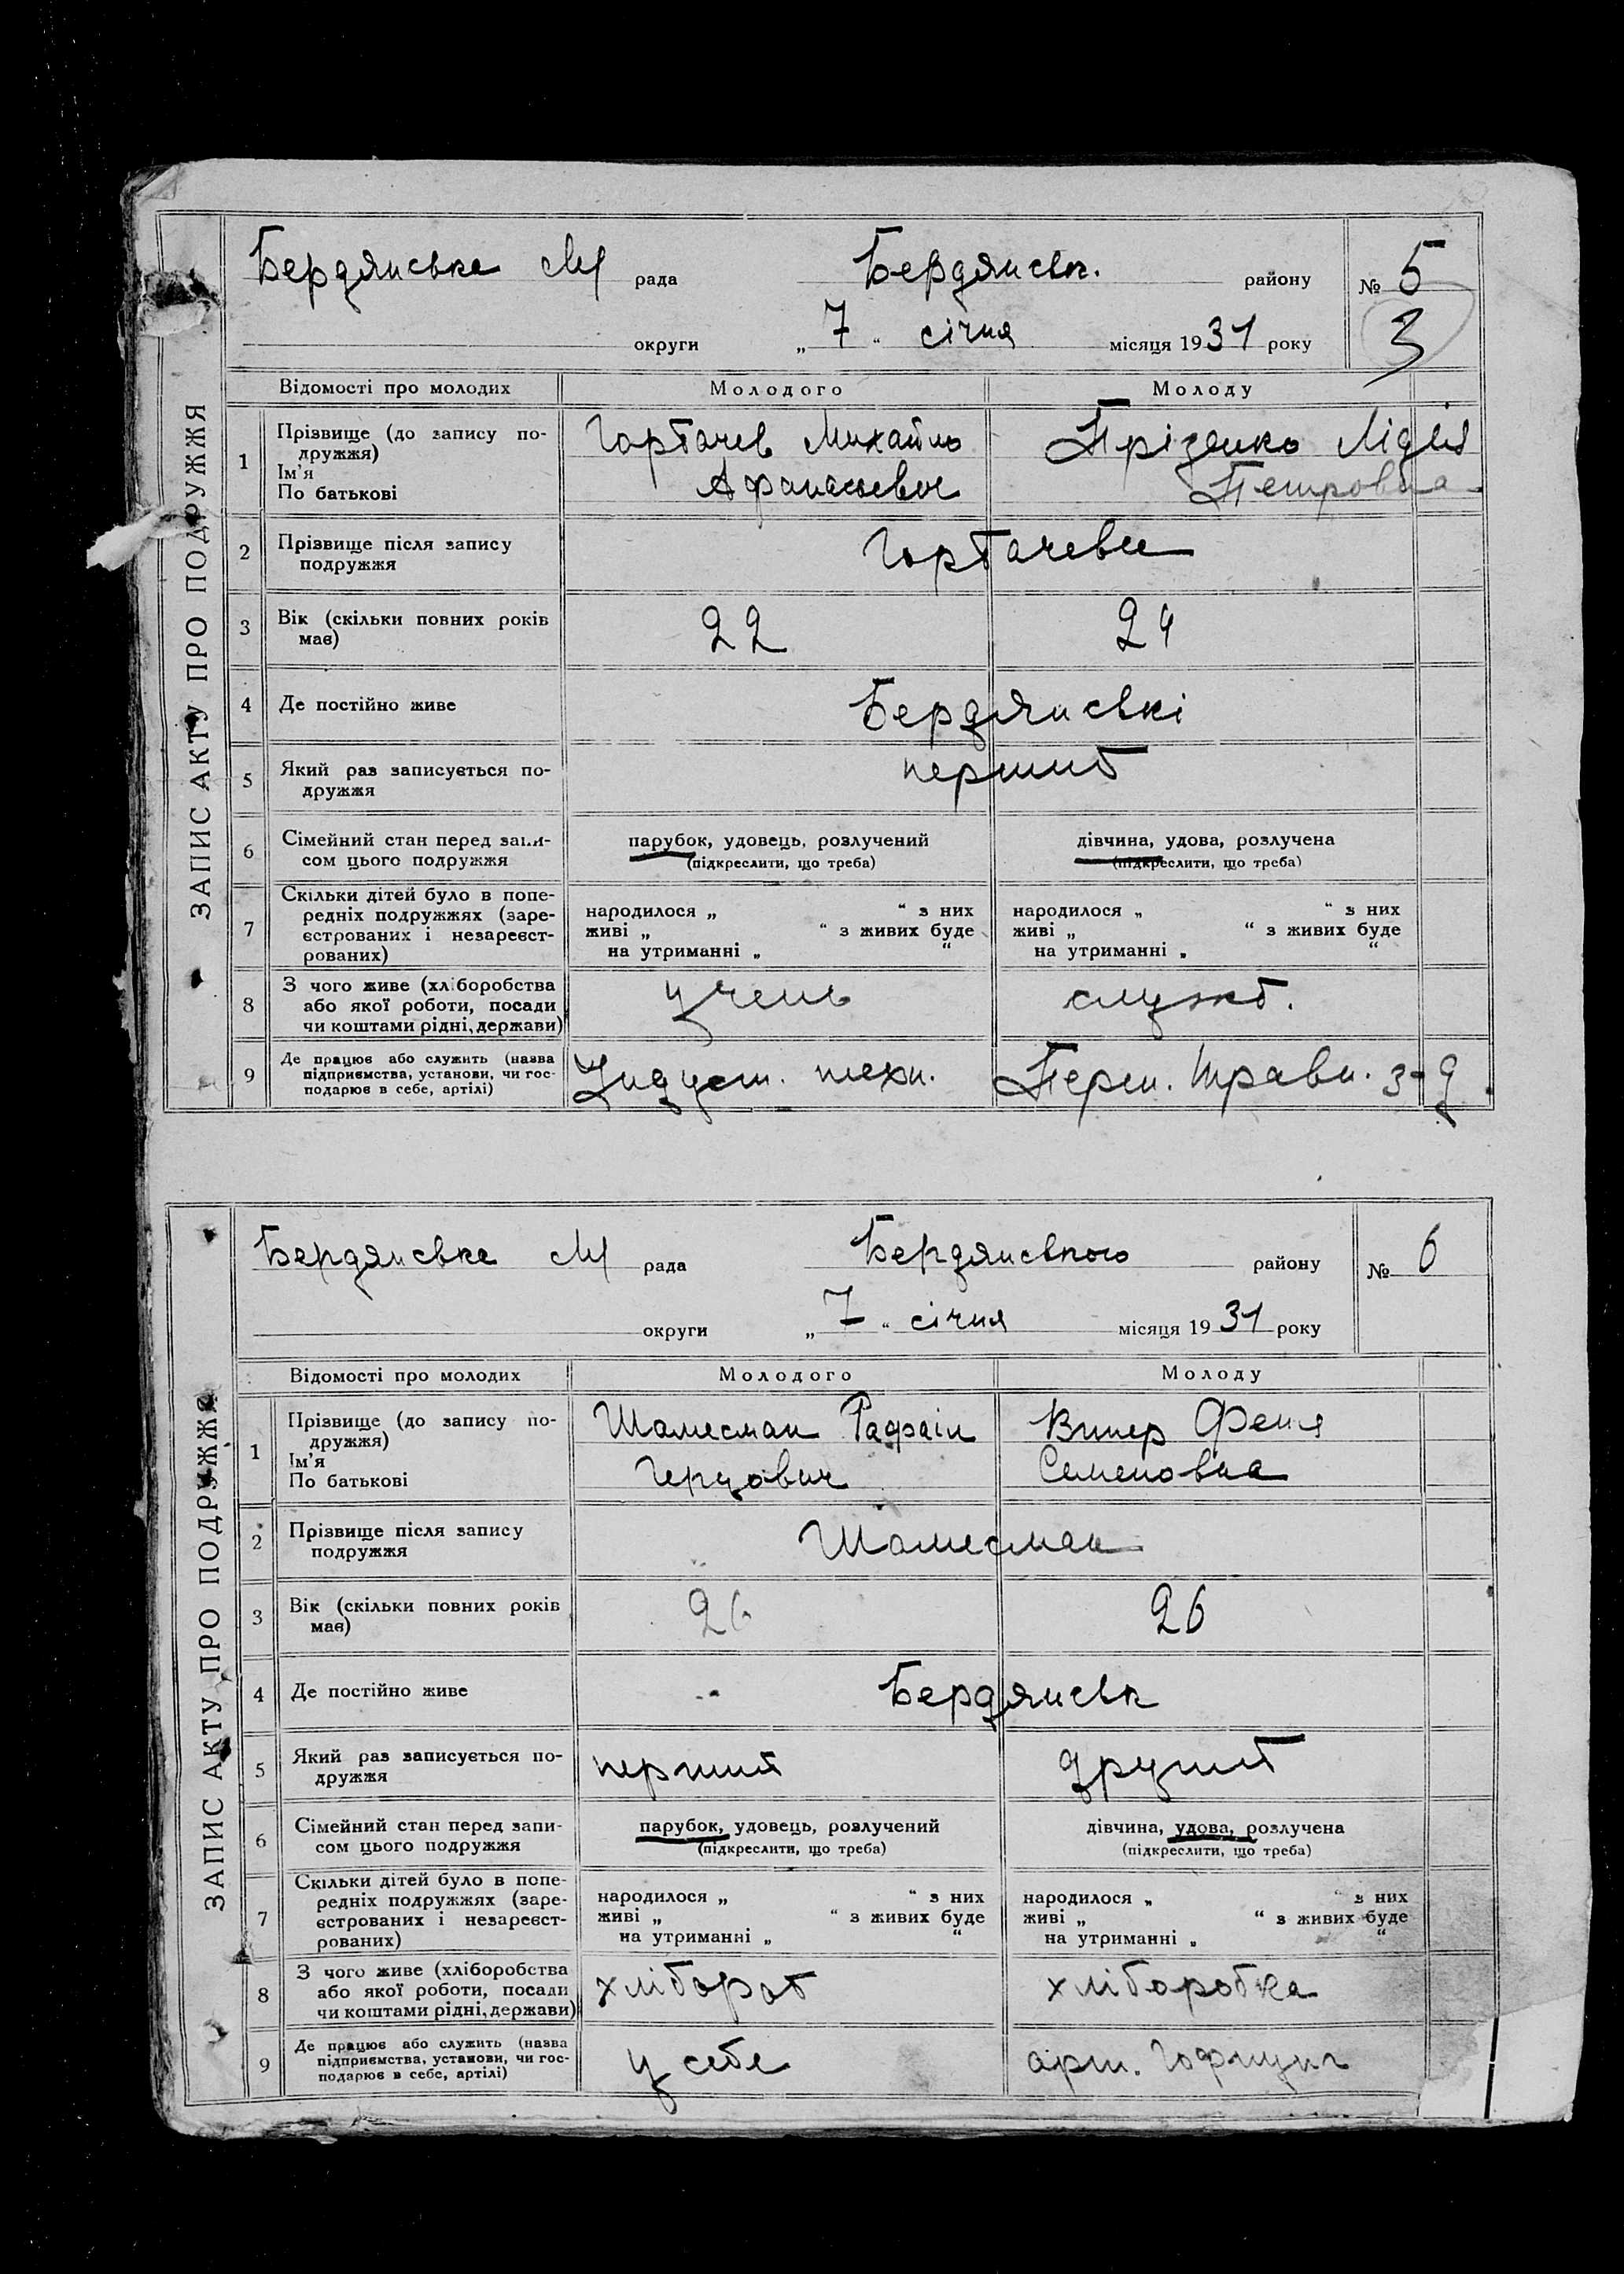 ЗАПИС АКТУ ПРО ПОДРУЖЖЯ
Бердянська М рада Бердянськ. району № 5
3
округи „ 7 “ січня місяця 1931 року
Відомості про молодих Молодого Молоду
1 Прізвище (до запису по-
дружжя)
Ім’я
По батькові
Горбачев Михайло
Афанасьевич
Прізенко Лідія
Петровна
2 Прізвище після запису
подружжя
Горбачеве
3 Вік (скільки повних років
має)
22 24
4 Де постійно живе Бердянські
5 Який раз записується по-
дружжя
перший
6 Сімейний стан перед запи-
сом цього подружжя
парубок, удовець, розлучений
(підкреслити, що треба)
дівчина, удова, розлучена
(підкреслити, що треба)
7 Скільки дітей було в попе-
редніх подружжях (заре-
єстрованих і незареєст-
рованих)
народилося „ “ з них
живі „ “ з живих буде
на утриманні „ “
народилося „ “ з них
живі „ “ з живих буде
на утриманні „ “
8 З чого живе (хліборобства
або якої роботи, посади
чи коштами рідні, держави)
учень служб.
9 Де працює або служить (назва
підприємства, установи, чи гос-
подарює в себе, артілі)
Індуст. техн. Перш. Травн. з-д.
ЗАПИС АКТУ ПРО ПОДРУЖЖЯ
Бердянська М рада Бердянського району № 6
округи „ 7 “ січня місяця 1931 року
Відомості про молодих Молодого Молоду
1 Прізвище (до запису по-
дружжя)
Ім’я
По батькові
Шамесман Рафаіл
Герцович
Винер Феня
Семеновна
2 Прізвище після запису
подружжя
Шамесман
3 Вік (скільки повних років
має)
26 26
4 Де постійно живе Бердянськ
5 Який раз записується по-
дружжя
перший другий
6 Сімейний стан перед запи-
сом цього подружжя
парубок, удовець, розлучений
(підкреслити, що треба)
дівчина, удова, розлучена
(підкреслити, що треба)
7 Скільки дітей було в попе-
редніх подружжях (заре-
єстрованих і незареєст-
рованих)
народилося „ “ з них
живі „ “ з живих буде
на утриманні „ “
народилося „ “ з них
живі „ “ з живих буде
на утриманні „ “
8 З чого живе (хліборобства
або якої роботи, посади
чи коштами рідні, держави)
хлібороб хлібаробка
9 Де працює або служить (назва
підприємства, установи, чи гос-
подарює в себе, артілі)
у себе арт.